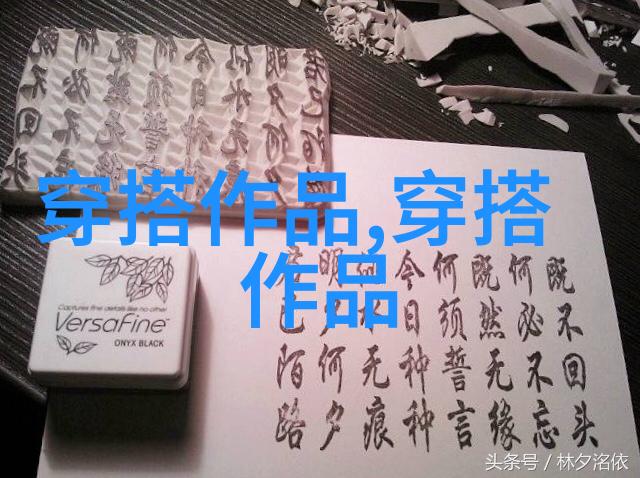 穿搭作品,穿搭
作品
既不回头
何必不忘
既然无缘
何须誓言
今日种种
似水无痕
明夕何夕
君已陌路
Captures fine details like no other
VersaFine
ONYX BLACK
头条号 / 林夕洺依